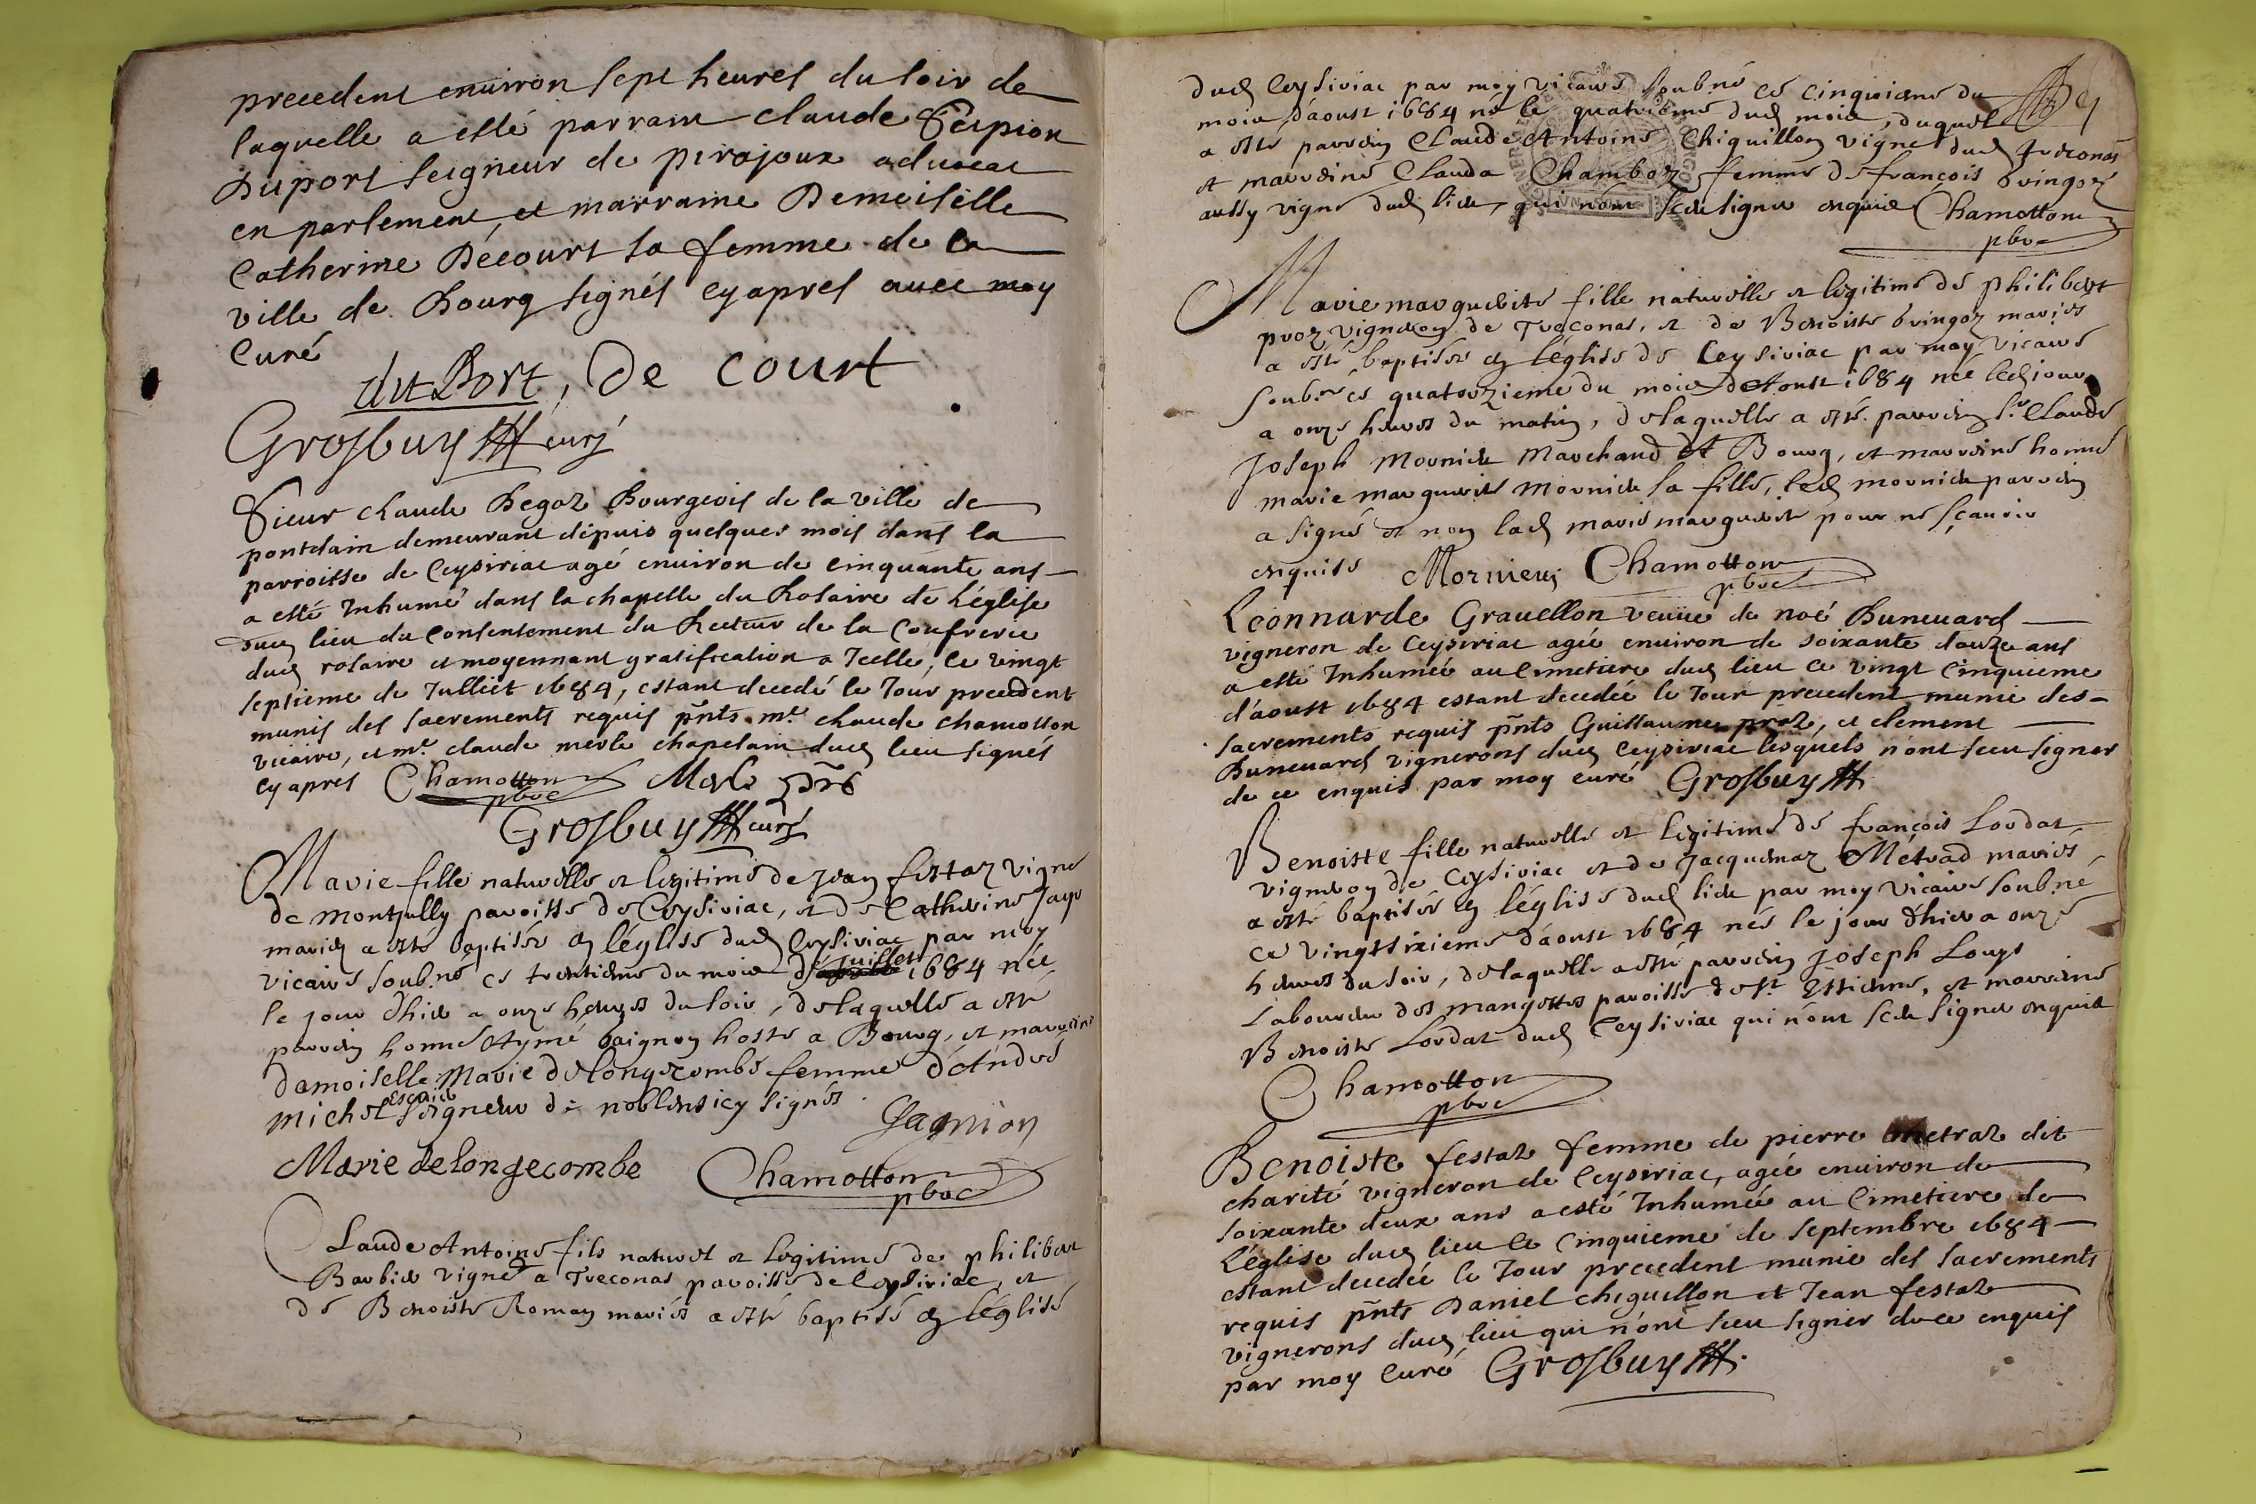 precedent environ sept heures du soir de
laquelle a esté parrain claude Scipion
Duport seigneur de pirajoux advocat
en parlement, et marraine Demoiselle
Catherine Décourt sa femme de la
ville de Bourg signés cy apres avec moy
Curé
duPort, De court
Grosbuy curé
Sieur claude Begoz Bourgeois de la ville de
pontdain demeurant depuis quelques mois dans la
parroisse de Ceysiriac agé environ de cinquante ans
a esté Inhumé dans la chapelle du Rosaire de l'église
dud lieu du consentement du Recteur de la Confrerie
dud rosaire et moyennant gratification a Icelle, le vingt
septieme de Julliet 1684, estant decedé le Jour precedent
munis des sacrements requis pnts mre claude chamotton
vicaire, et mre claude merle chapelain dud lieu signés
cy apres Chamotton pbre Merle
Grosbuy curé
Marie fille naturelle et legitime de Jean festaz vigne
de montjully paroisse de Ceysiriac, et de Catherine
mariés a esté baptisée en l'église dud Ceysiriac par moy
vicaire soubné ce trentieme du mois de juillet 1684 née
le jour d'hier a onze heures du soir, de laquelle a esté
parrein honné Aymé gaignon hoste a Bourg, et marreine
damoiselle Marie de longecombe femme d'André
michel Escuier seigneur de noblens icy signés
Gagnion
Marie de longecombe Chamotton pbre
Claude Antoine fils naturel et legitime de philibert
Barbier vigne a Treconas paroisse de Ceysiriac, et
de Benoiste Roman mariés a esté baptisé en l'église
dud Ceysiriac par moy vicaire soubné ce cinquieme du
mois d'aoust 1684 né le quatrieme dud mois, duquel
a esté parrein Claude Antoine Chiquillon vigne dud Treconas
et marreine Clauda Chamboz femme de françois bringoz
aussy vigne dud lieu, qui n'ont sceu signer enquis Chamotton
pbre
Marie marguerite fille naturelle et legitime de philibert
proz vigneron de Treconas, et de Benoiste bringoz mariés
a esté baptisée en l'église de Ceysiriac par moy vicaire
soubné ce quatorzieme du mois d'Aoust 1684 née led jour
a onze heures du matin, de laquelle a esté parrein sr Claude
Joseph mornieu marchand A Bourg, et marreine honne
marie marguerite mornieu sa fille, led mornieu parrein
a signé et non lad marie marguerite pour ne sçavoir
enquise Mornieu Chamotton
pbre
Léonnarde Gravellon veuve de noé Bunevard
vigneron de Ceysiriac agée environ de soixante douze ans
a esté Inhumée au cimetiere dud lieu ce vingt cinquieme
d'aoust 1684 estant decedée le Jour precedent munie des
sacrements requis pnts Guillaume proz, et clement
Bunevard vignerons dud Ceysiriac lesquels n'ont sceu signer
de ce enquis par moy curé Grosbuy
Benoiste fille naturelle et legitime de françois Lordaz
vigneron de Ceysiriac et de Jacquemaz Métrad mariés
a esté baptisée en l'église dud lieu par moy vicaire soubné
ce vingtsixieme d'aoust 1684 née le jour d'hier a onze
heures du soir, de laquelle a esté parrein Joseph Loups
Laboureur des mangettes paroisse de st Estienne, et marreine
Benoiste Lordaz dud Ceysiriac qui n'ont sceu signer enquis
Chamotton
pbre
Benoiste festaz femme de pierre metraz dit
charité vigneron de Ceysiriac, agée environ de
soixante deux ans a esté Inhumée au Cimetiere de
l'église dud lieu le cinquieme de septembre 1684
estant decedée le Jour precedent munie des sacrements
requis pnts Daniel chiquillon et Jean festaz
vignerons dud lieu qui n'ont sceu signer de ce enquis
par moy Curé Grosbuy